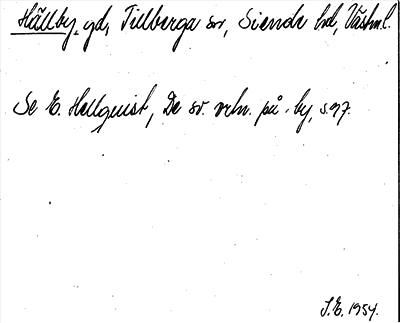 Hällby, gd, Tillberga sn, Siende hd, Västml.
Se E. Hellquist, De sv. ortn. på -by, s. 97.
J.E. 1954.